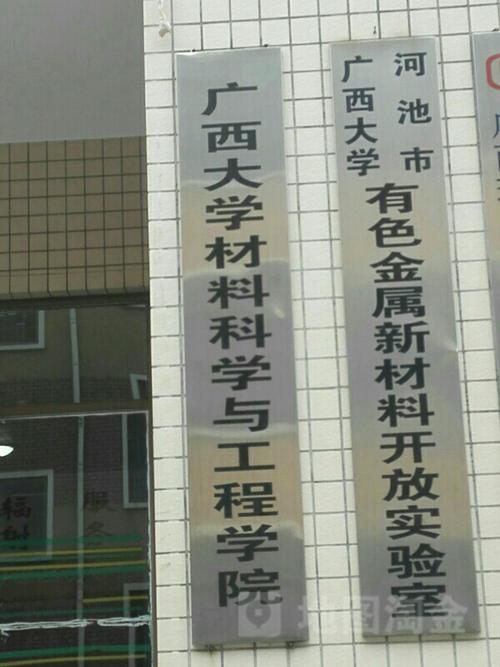 广西大学材料科学与工程学院
广西大学
河池市
有色金属新材料开放实验室
辐射
服务
地图淘金